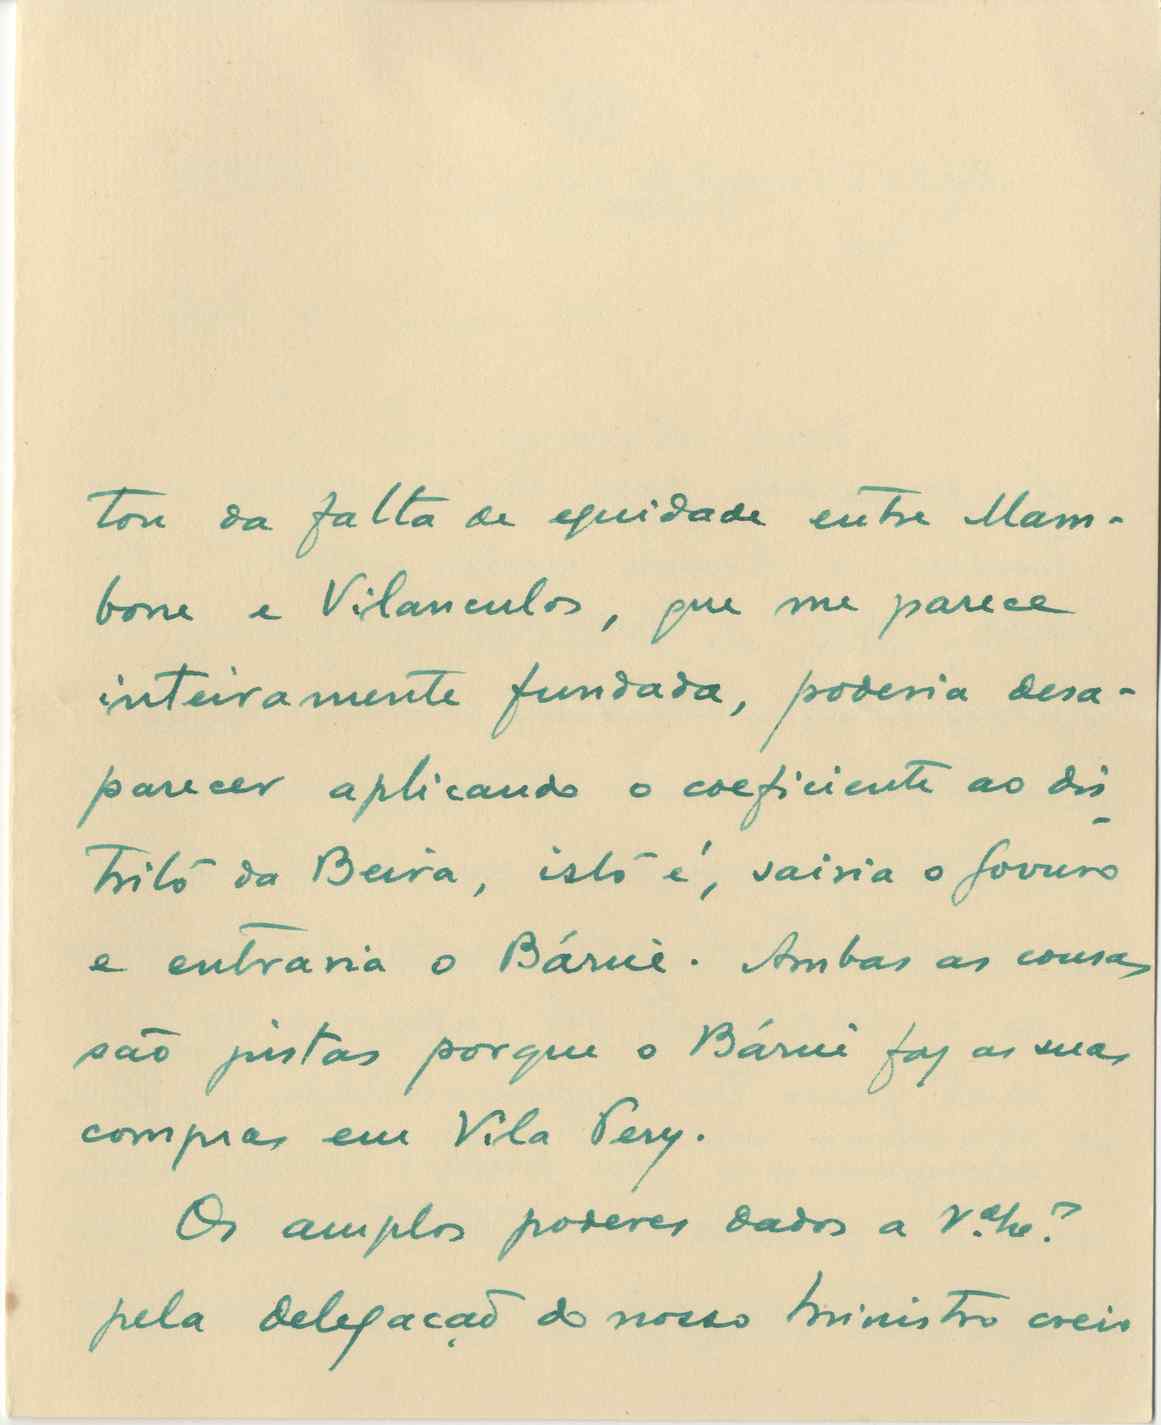 tou da falta de equidade entre Mam-
bone e Vilanculos, que me parece
inteiramente fundada, poderia desa-
parecer aplicando o coeficiente ao dis-
trito da Beira, isto é, sairia o Govuro
e entraria o Báruè. Ambas as cousas
são justas porque o Báruè faz as suas
compras em Vila Pery.
Os amplos poderes dados a
pela delegação do nosso Ministro creio